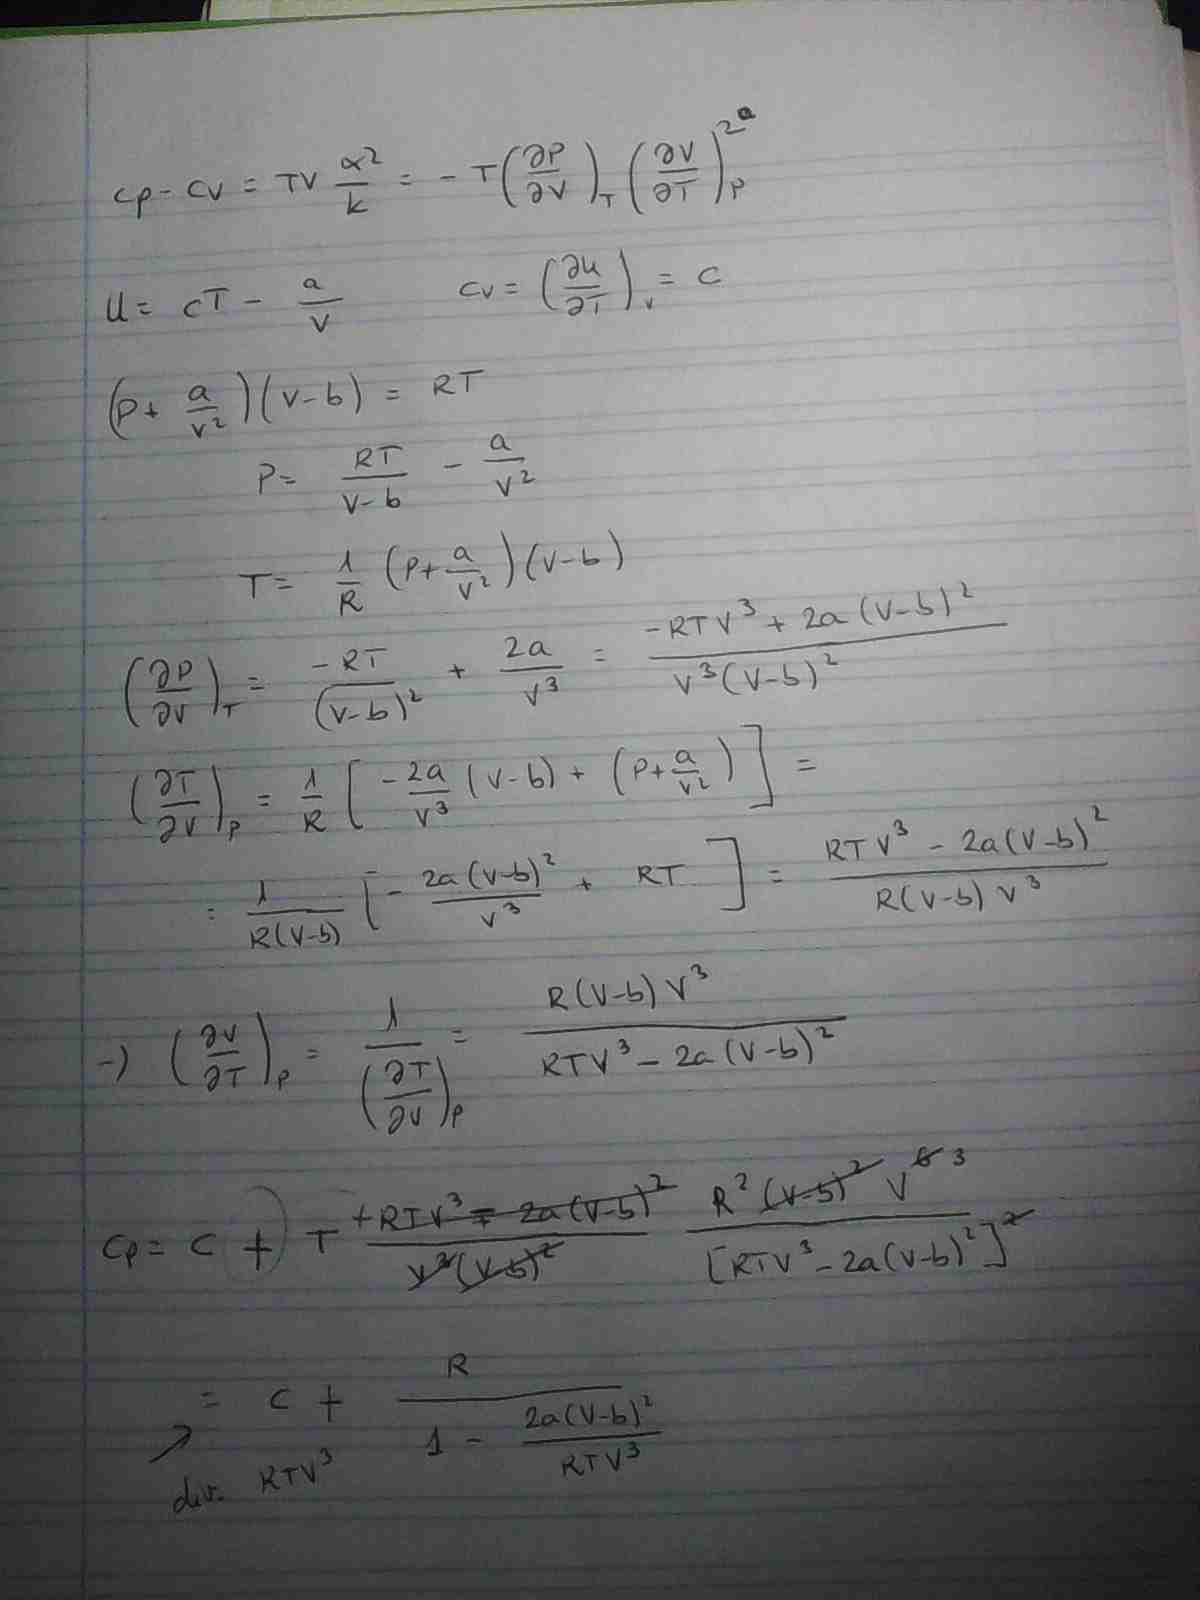 cp - cv = TV α²/k = -T (∂P/∂V)_T (∂V/∂T)_P^2
U = cT - a/V   cv = (∂U/∂T)_V = c
(P + a/V²)(V-b) = RT
P = RT/(V-b) - a/V²
T = 1/R (P + a/V²)(V-b)
(∂P/∂V)_T = -RT/(V-b)² + 2a/V³ = (-RTV³ + 2a(V-b)²)/(V³(V-b)²)
(∂T/∂V)_P = 1/R [-2a/V³ (V-b) + (P + a/V²)] =
= 1/(R(V-b)) [-2a(V-b)²/V³ + RT] = (RTV³ - 2a(V-b)²)/(R(V-b)V³)
→ (∂V/∂T)_P = 1/(∂T/∂V)_P = R(V-b)V³/(RTV³ - 2a(V-b)²)
cp = c + T (+RTV³ - 2a(V-b)²)/(V³(V-b)²) R²(V-b)² V⁶ 3/[RTV³ - 2a(V-b)²]²
= c + R/(1 - 2a(V-b)²/(RTV³))
div. RTV³